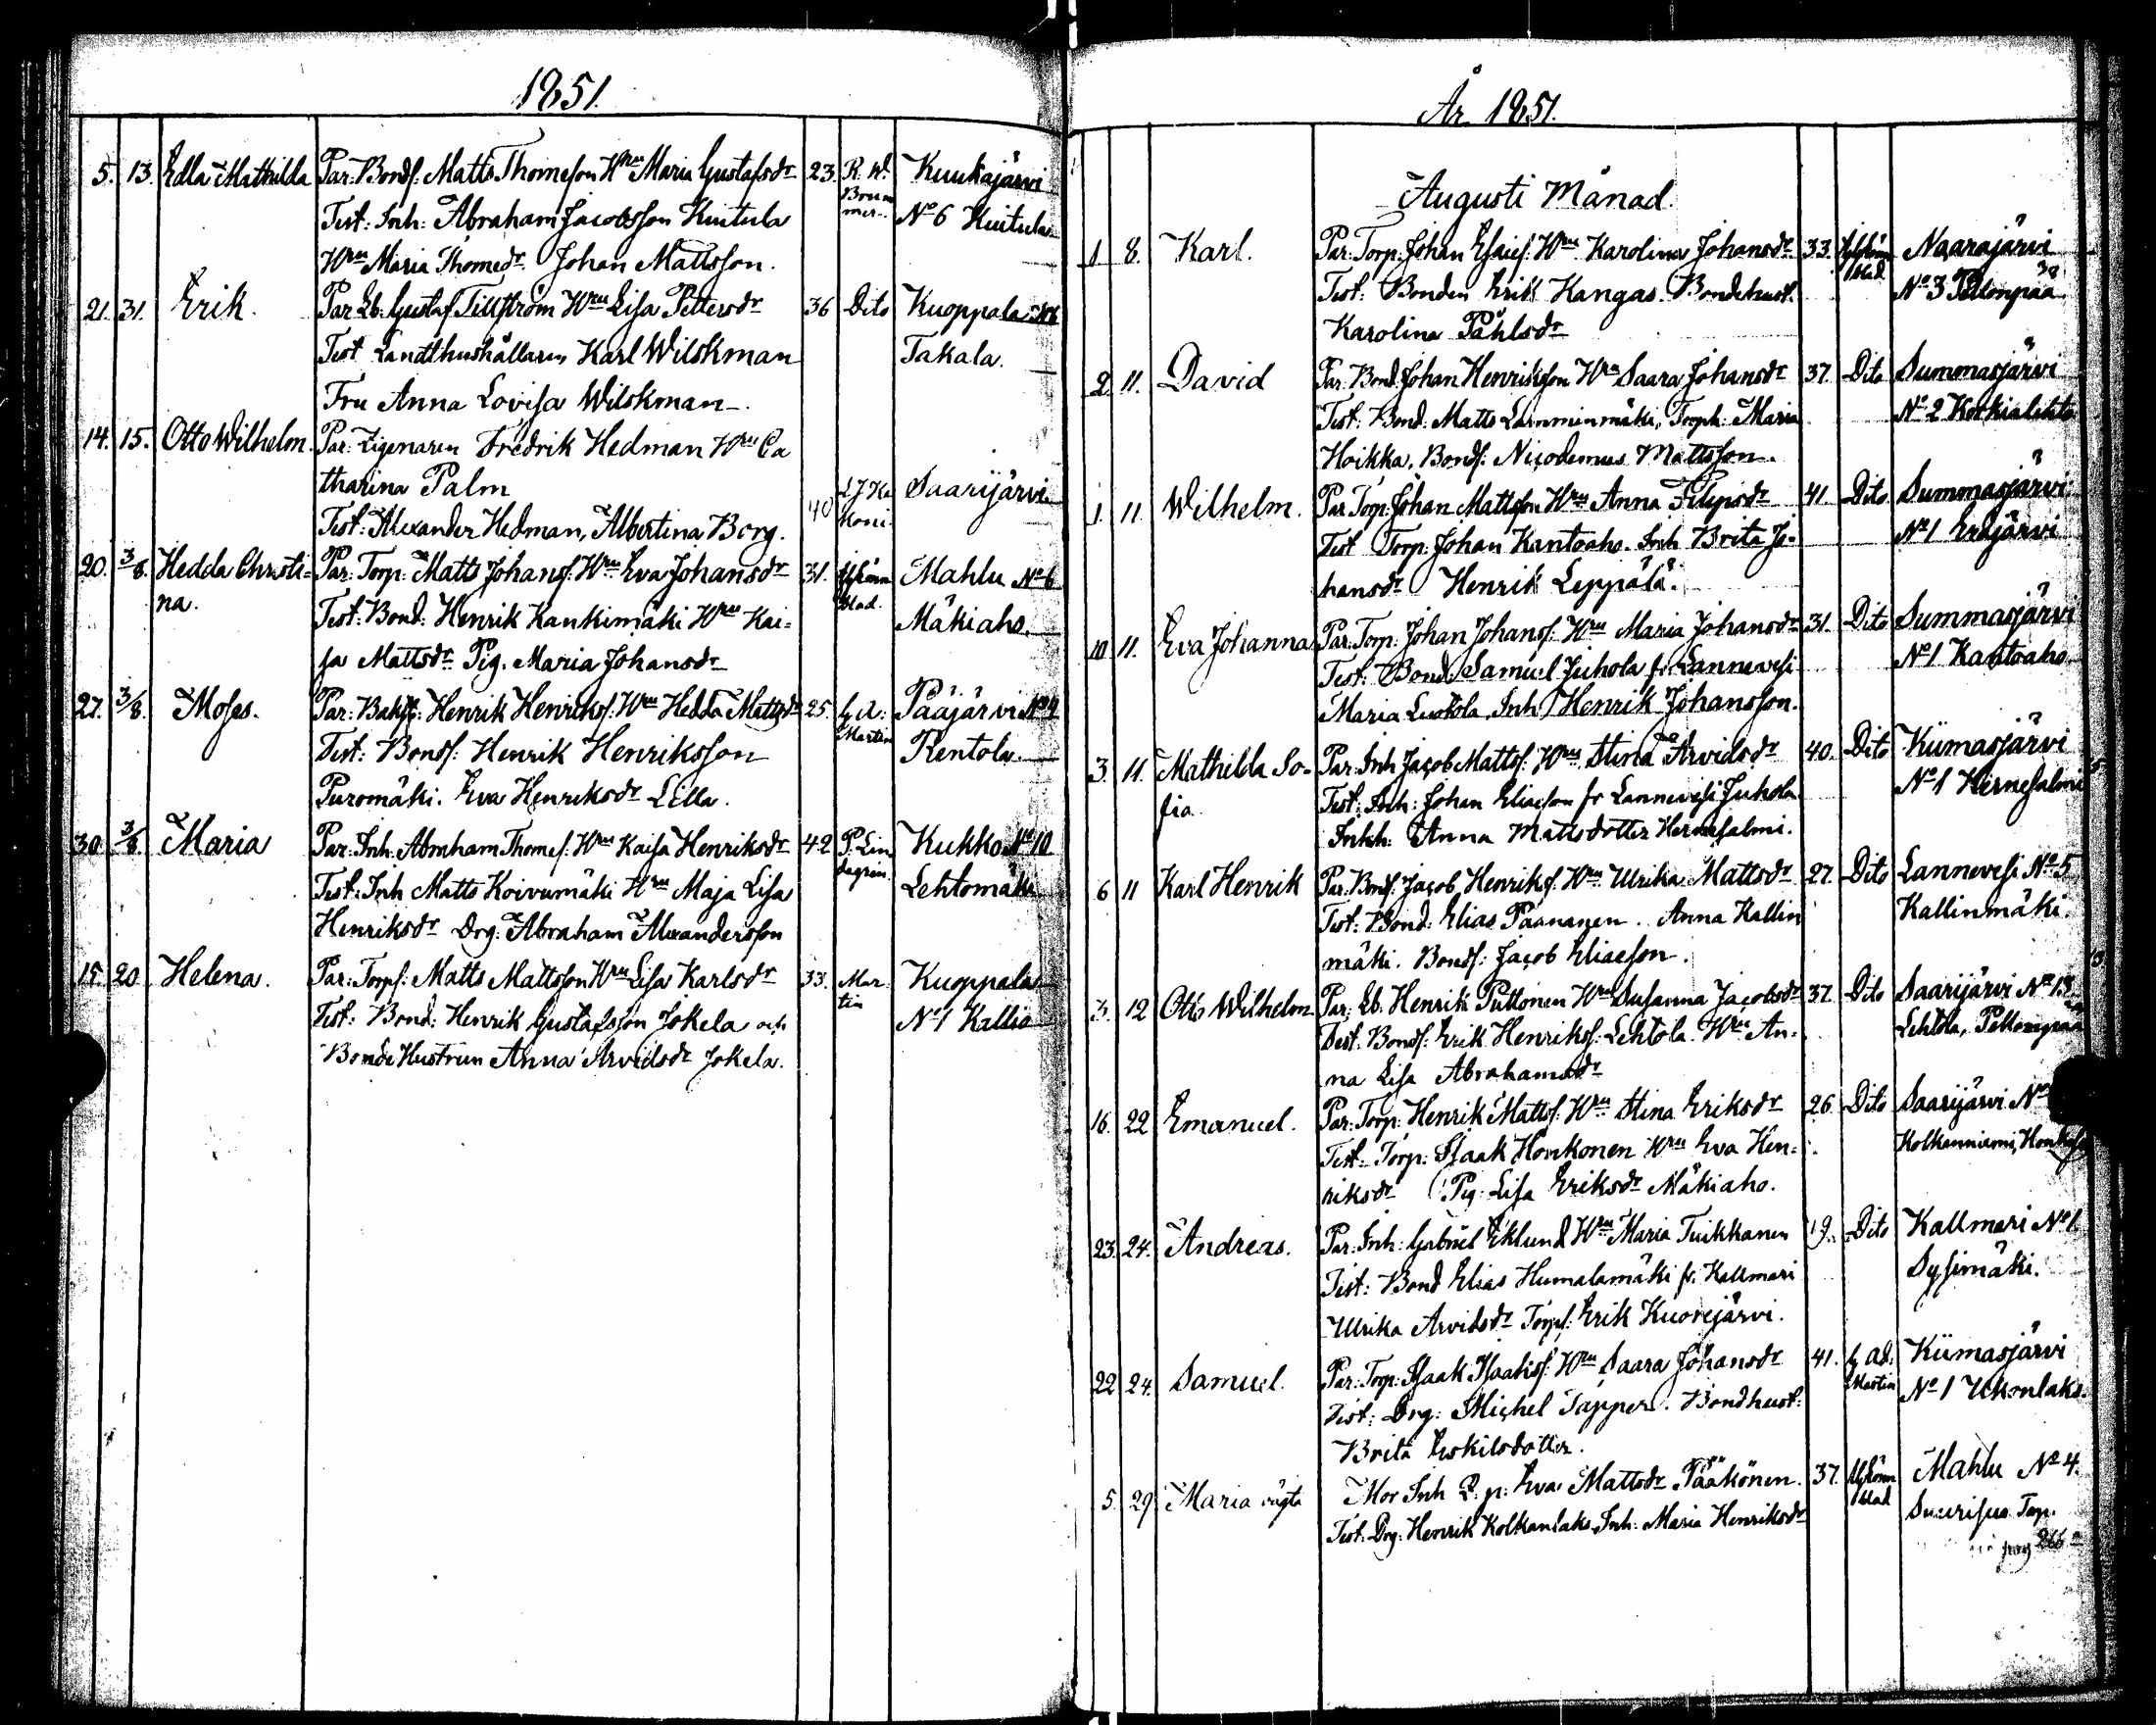 1851.
5. 13. Edla Mathilda Par: Bonds: Matts Thomeson Hru Maria Gustafsdr 23. R. W. Kuukajärvi
Test: Inh: Abraham Jacobsson Kuitula Brummer. No 6 Kuitula
Hru Maria Thomedr Johan Mattsson.
21. 31. Erik. Par Lb: Gustaf Tillström Hru Lisa Pettersdr 36 Dito Kuoppala No 6
Test Landthushållaren Karl Wilskman Takala.
Fru Anna Lovisa Wilskman.
14. 15. Otto Wilhelm. Par: Zigenaren Fredrik Hedman Hru Ca
tharina Palm Saarijärvi
Test: Alexander Hedman, Albertina Borg. 40 Koni
20. 3/8. Hedda Christi= Par: Torp: Matts Johans: Hru Eva Johansdr 31. Mahlu No 6
na. Test: Bond: Henrik Kankimäki Hru Kai= blad. Mäkiaho.
sa Mattsdr Pig. Maria Johansdr
27. 3/8. Moses. Par: Henrik Henriks: Hru Hedda Mattsdr 25. Pääjärvi No 4
Test: Bonds: Henrik Henriksson Martin Rentola.
Puromäki. Eva Henriksdr Lilla.
30. 3/8. Maria Par: Inh. Abraham Thomes: Hru Kaisa Henriksdr 42 P. Lin Kukko No 10
Test: Inh Matts Koivumäki Hru Maja Lisa degrén. Lehtomäki
Henriksdr Drg: Abraham Alexandersson
15. 20 Helena. Par: Torps: Matts Mattsson Hru Lisa Karlsdr 33. Mar Kuoppala
Test: Bond: Henrik Gustafsson Jokela och tin No 1 Kallio
Bonde Hustrun Anna Arvidsdr Jokela.
År 1851.
Augusti Månad.
1 8. Karl. Par: Torp: Johan Esaies: Hru Karolina Johansdr 33. Naarajärvi
Test: Bonden Erik Kangas. Bondehust. blad. No 3 Pellonpää
Karolina Påhlsdr
2 11. David Par: Bond. Johan Henriksson Hru Saara Johansdr 37. Dito Summasjärvi
Test: Bond: Matts Lamminmäki, Torph: Maria No 2 Korkialehto
Hoikka. Bonds: Nicodemus Mattsson.
1. 11 Wilhelm. Par Torp: Johan Mattsson Hru Anna Filipsdr 41. Dito Summasjärvi
Test Torp: Johan Kantoaho. Inh Brita Jo= No 1 Eräjärvi
hansdr Henrik Leppälä.
10 11. Eva Johanna Par: Torp: Johan Johans: Hru Maria Johansdr 31. Dito Summasjärvi
Test: Bond: Samuel Juhola fr: Lannevesi No 1 Kantoaho
Maria Luotola, Inh Henrik Johansson.
3. 11. Mathilda So- Par: Inh Jacob Matts: Hru Stina Arvidsdr 40. Dito Kiimasjärvi
fia. Test: Inh: Johan Eliaeson fr Lannevesi Juhola No 1 Hernesalmi
Inhh: Anna Mattsdotter Hernesalmi.
6 11 Karl Henrik Par: Bonds: Jacob Henriks: Hru Ulrika Mattsdr 27. Dito Lannevesi No 5
Test: Bond: Elias Paananen. Anna Kallin Kallinmäki.
mäki. Bonds: Jacob Eliaeson.
3. 12 Otto Wilhelm Par: Lb. Henrik Puttonen Hru Susanna Jacobsdr 37. Dito Saarijärvi No 13
Test: Bonds: Erik Henriks: Lehtola Hru An- Lehtola, Pellonpää
na Lisa Abrahamsdr
16. 22 Emanuel. Par: Torp: Henrik Matts: Hru Stina Eriksdr 26. Dito Saarijärvi No
Test: Torp: Isaak Honkonen Hru Eva Hen= Kolkanniemi,
riksdr Pig: Lisa Eriksdr Mäkiaho.
23. 24. Andreas. Par: Inh: Gabriel Eklund Hru Maria Tuikkanen 19. Dito Kallmari No 1.
Test: Bond Elias Humalamäki fr. Kallmari Sysimäki.
Ulrika Arvidsdr Torps: Erik Kuorejärvi.
22 24. Samuel. Par: Torp: Isaak Isaaks: Hru Saara Johansdr 41. Kiimasjärvi
Test: Drg: Michel Tapper. Bondhust: Martin No 1 Ukonlaks.
Brita Eskilsdotter.
5. 29 Maria oägta Mor Inh Eva Mattsdr Pääkönen. 37. Mahlu No 4.
Test. Drg: Henrik Kolkanlaks, Inh: Maria Henriksdr blad Torp.
pag 266